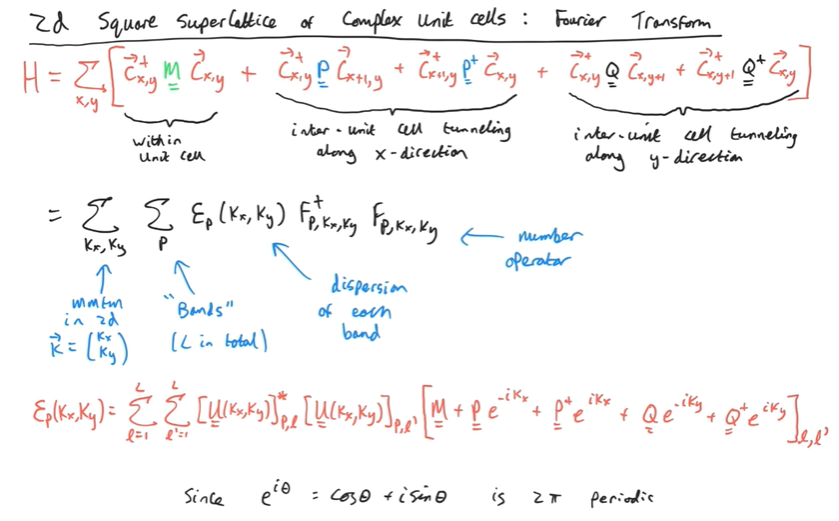 2d Square Superlattice of Complex Unit cells : Fourier Transform
H = Σ_{x,y} [ \vec{c}^†_{x,y} M \vec{c}_{x,y} + \vec{c}^†_{x,y} P \vec{c}_{x+1,y} + \vec{c}^†_{x+1,y} P^† \vec{c}_{x,y} + \vec{c}^†_{x,y} Q \vec{c}_{x,y+1} + \vec{c}^†_{x,y+1} Q^† \vec{c}_{x,y} ]
within
unit cell
inter-unit cell tunneling
along x-direction
inter-unit cell tunneling
along y-direction
= Σ_{Kx,Ky} Σ_P ε_p(Kx,Ky) F^†_{P,Kx,Ky} F_{P,Kx,Ky}
number
operator
mmtm
in 2d
\vec{K} = (Kx Ky)
"Bands"
(L in total)
dispersion
of each
band
ε_p(Kx,Ky) = Σ_{l=1}^{L} Σ_{l'=1}^{L} [U(Kx,Ky)]^*_{p,l} [U(Kx,Ky)]_{p,l'} [ M + P e^{-iKx} + P^† e^{iKx} + Q e^{-iKy} + Q^† e^{iKy} ]_{l,l'}
Since e^{iθ} = cosθ + i sinθ is 2π periodic